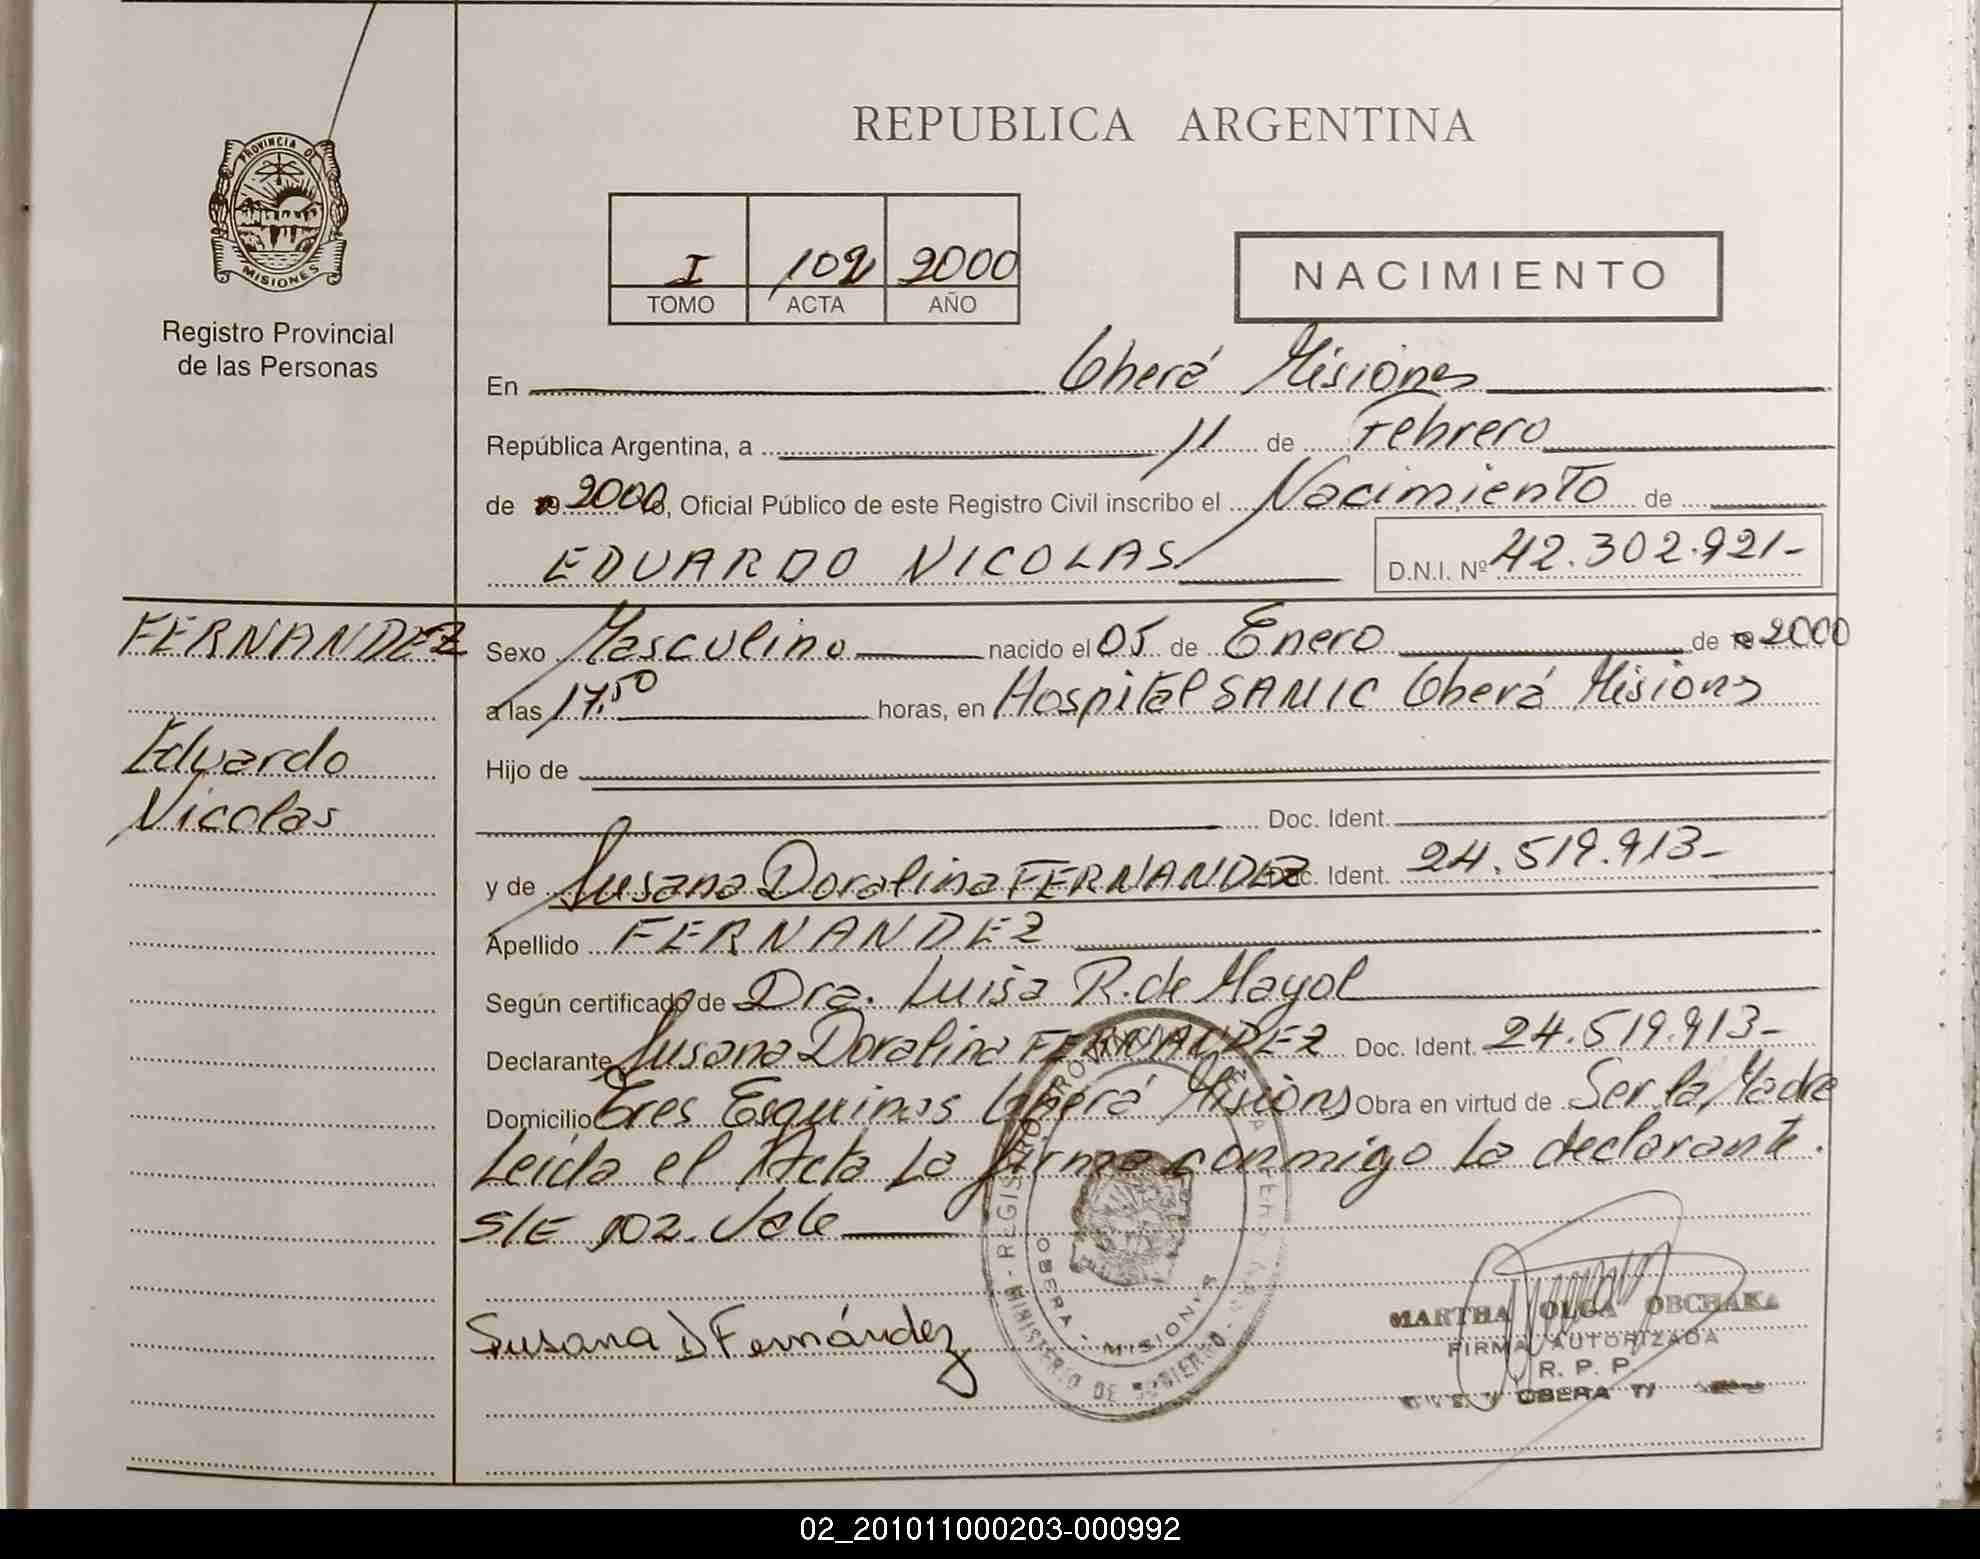 REPUBLICA ARGENTINA
PROVINCIA DE
MISIONES
Registro Provincial
de las Personas
I 102 2000
TOMO ACTA AÑO
NACIMIENTO
En Oberá Misiones
República Argentina, a 11 de Febrero
de 2000, Oficial Público de este Registro Civil inscribo el Nacimiento de
EDUARDO NICOLAS D.N.I. Nº 42.302.921-
FERNANDEZ
Eduardo
Nicolas
Sexo Masculino nacido el 05 de Enero de 2000
a las 17.50 horas, en Hospital SAMIC Oberá Misiones
Hijo de
Doc. Ident.
y de Susana Doralina FERNANDEZ Doc. Ident. 24.519.913-
Apellido FERNANDEZ
Según certificado de Dra. Luisa R. de Mayol
Declarante Susana Doralina FERNANDEZ Doc. Ident. 24.519.913-
Domicilio Tres Esquinas Oberá Misiones Obra en virtud de Ser la Madre
Leida el Acta La firma conmigo la declarante.
S/E 102. Vale
Susana D Fernández
OBERA - MISIONES
MARTHA OLGA OBCHAKA
FIRMA AUTORIZADA
R. P. P.
OBERA
02_201011000203-000992